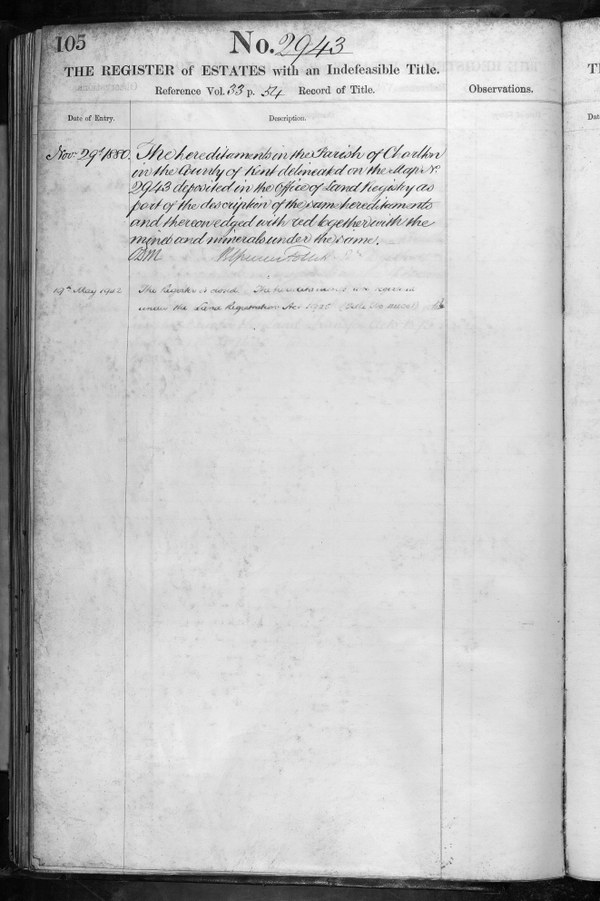 105
No. 2943
THE REGISTER of ESTATES with an Indefeasible Title.
Reference Vol. 33 p. 54 Record of Title.
Observations.
Date of Entry.
Description.
Nov. 29th 1880. The hereditaments in the Parish of Charlton
in the County of Kent delineated on the Map No.
2943 deposited in the Office of Land Registry as
part of the description of the same hereditaments
and thereon edged with red together with the
mines and minerals under the same.
19th May The Register is closed. The hereditaments
under the Land Registration Act 1925 (Title